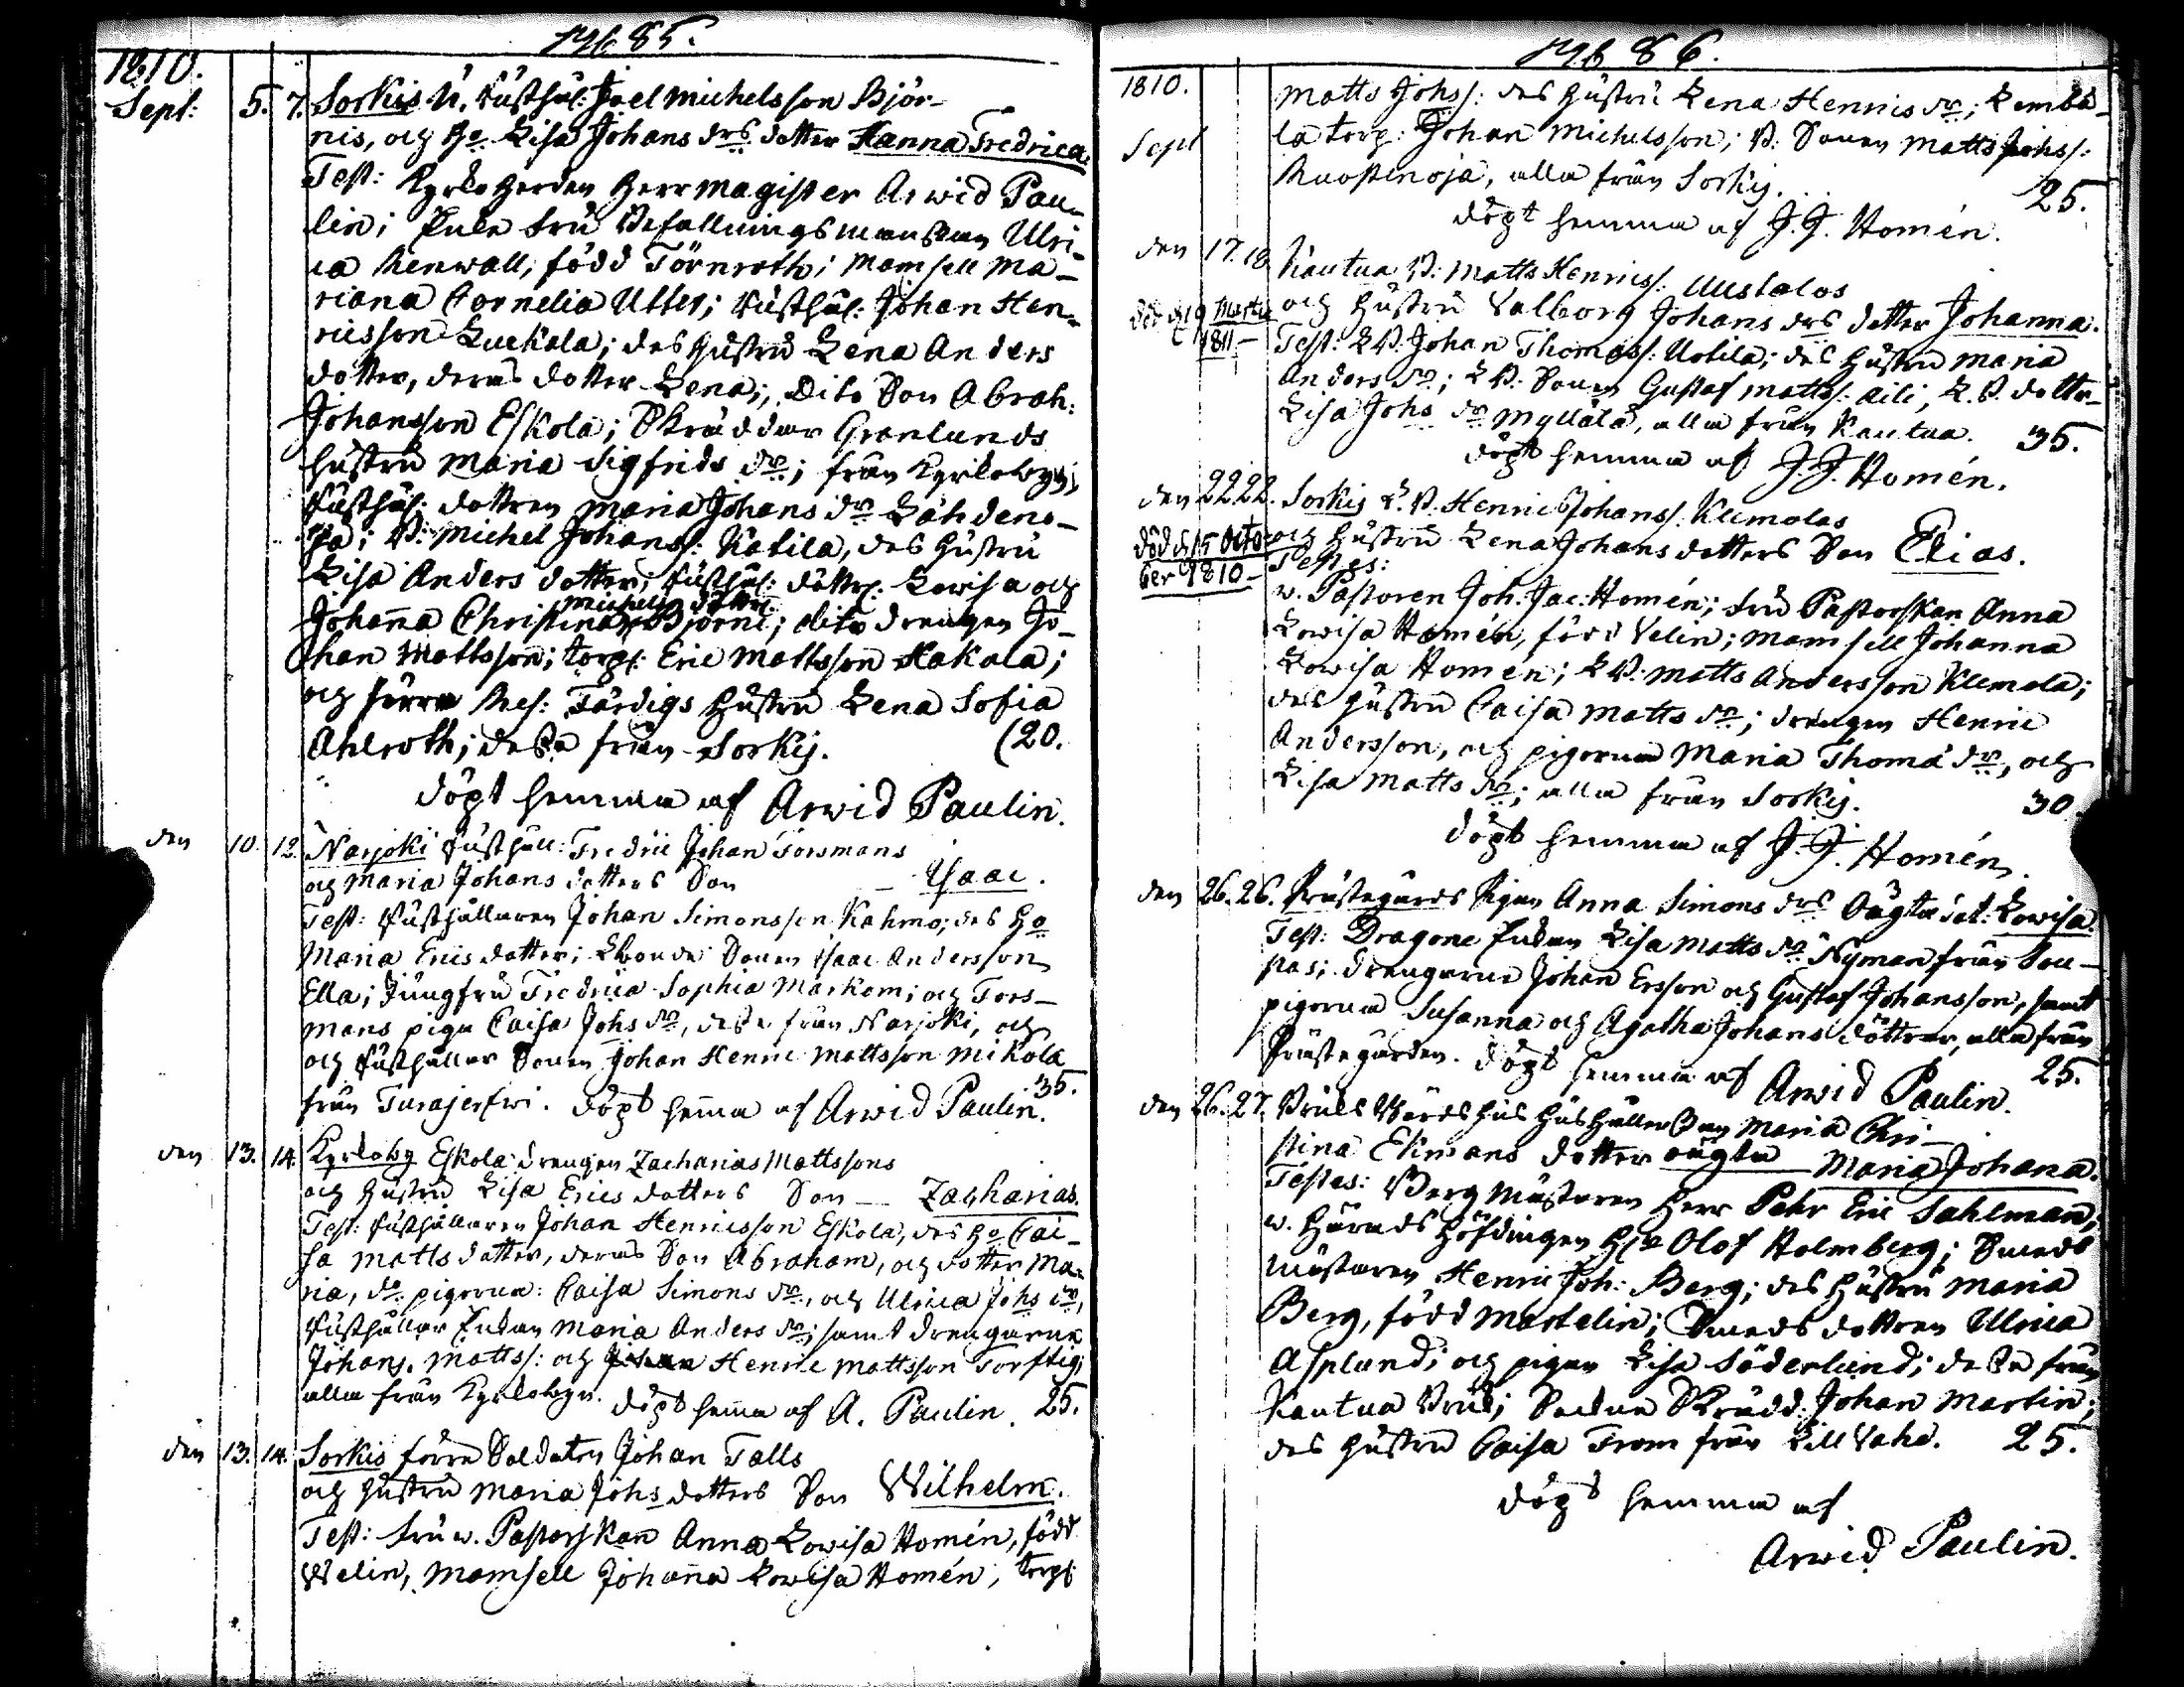 pag 85.
1810.
Sept: 5. 7. Sorkis N. Rusthål: Joel Michelsson Björ-
nis, och Ho Lisa Johans drs dotter Hanna Fredrica.
Test: Kyrkoherden Herr Magister Arwid Pau-
lin; Enke Fru Befallningsmanskan Ulri-
ca Renwall, född Törnroth; Mamsell Ma-
riana Cornelia Utter; Rusthål: Johan Hen-
ricsson Luekola; des hustru Lena Anders
dotter, deras dotter Lena; Dito Son Abrah:
Johansson Eskola; Skräddar Grönlunds
hustru Maria Sigfrids dr; från Kyrkobyn;
Rusthål: dottren Maria Johans dr Lähdens-
B: Michel Johans: Katila, des hustru
Lisa Anders dotter; Rusthål: döttr: Lowisa och
Michels döttr:
Johanna Christina Björni; dito drengen Jo-
han Mattsson; torp: Eric Mattsson Hakala;
och förre Res: Färdigs hustru Lena Sofia
Ahlroth; desse från Sorkis. (20.
döpt hemma af Arwid Paulin.
den 10. 12. Narjoki Rusthåll: Fredric Johan Forsmans
och Maria Johans dotters Son — Isaac.
Test: Rusthållaren Johan Simonsson Kahmo; des Ho
Maria Erics dotter; Bonde Sonen Isaac Andersson
Ella; Jungfru Fredrica Sophia Markom; och Fors-
mans piga Caisa Johs dr, desse från Narjoki, och
och Rusthållar Sonen Johan Henric Mattsson Mikola
från Turajerfwi. döpt hemma af Arwid Paulin. 35.
den 13. 14. Kyrkoby Eskola drengen Zacharias Mattssons
och hustru Lisa Erics dotters Son — Zacharias.
Test: Rusthållaren Johan Henricsson Eskola, des Ho Cai-
sa Mattsdotter, deras Son Abraham, och dotter Ma-
ria, do pigorna: Caisa Simons dr, och Ulrica Johs dr,
Rusthållar Enkan Maria Anders dr; samt drengarne
Johans. Matts: och Henric Mattsson Torftig;
alla från Kyrkobyn. döpt hemma af A. Paulin. 25.
den 13. 14. Sorkis förre Soldaten Johan Talls
och hustru Maria Johs dotters Son Wilhelm.
Test: Fru w. Pastorskan Anna Lowisa Homén, född
Welin, Mamsell Johanna Lowisa Homén, torp:
pag 86.
1810.
Sept
Matts Johs: des hustru Lena Henrics dr; Lembä-
la torp: Johan Michelsson; B. Sonen Matts Johs:
Ruostenoja, alla från Sorkis. 25.
döpt hemma af J. J. Homén.
den 17. 18. Kautua B: Matts Henrics: Uustalos
och hustru Valborg Johans drs dotter Johanna.
död d. 9 Martii 1811 —
Test: LB. Johan Thomass: Uotila; des hustru Maria
Anders dr; LB. Sonen Gustaf Matts: Aili, L.B. dottr-
Lisa Johs dr Myllälä, alla från Kautua. 35.
döpt hemma af J. J. Homén.
den 22. 22. Sorkis L. B. Henric Johans: Klemolas
och hustru Lena Johans dotters Son Elias.
död d. 15 Octo
ber 1810 —
Testes:
w. Pastoren Joh: Jac: Homén; Fru Pastorskan Anna
Lowisa Homén, född Velin; Mamsell Johanna
Lowisa Homen; LB: Matts Andersson Klemola;
des hustru Caisa Matts dr; drengen Henric
Andersson, och pigorna Maria Thomæ dr, och
Lisa Matts dr; alla från Sorkis. 30
döpt hemma af J. J. Homén.
den 26. 26. Prästegårds Pigan Anna Simons drs Oägta dot: Lowisa.
Test: Dragone Enkan Lisa Matts dr Nyman från Sou-
pas; drengarne Johan Ersson och Gustaf Johansson, samt
pigorna Susanna och Agatha Johans döttrar, alla från
Prästegården. döpt hemma af Arwid Paulin. 25.
den 26. 27. Bruks Wärdshus Hushållerskan Maria Chri-
stina Ekmans dotter oägta Maria Johana.
Testes: Bergmästaren Herr Pehr Eric Sahlman,
w. Häradshöfdingen H:r Olof Holmberg; Smeds
mästaren Henric Joh: Berg; des hustru Maria
Berg, född Martelin; Smeds dottren Ulrica
Asplund; och pigan Lisa Söderlund; desse från
Kautua Bruk; Sockne Skrädd: Johan Martin;
des hustru Caisa From från Lill Vahe. 25.
döpt hemma af
Arwid Paulin.